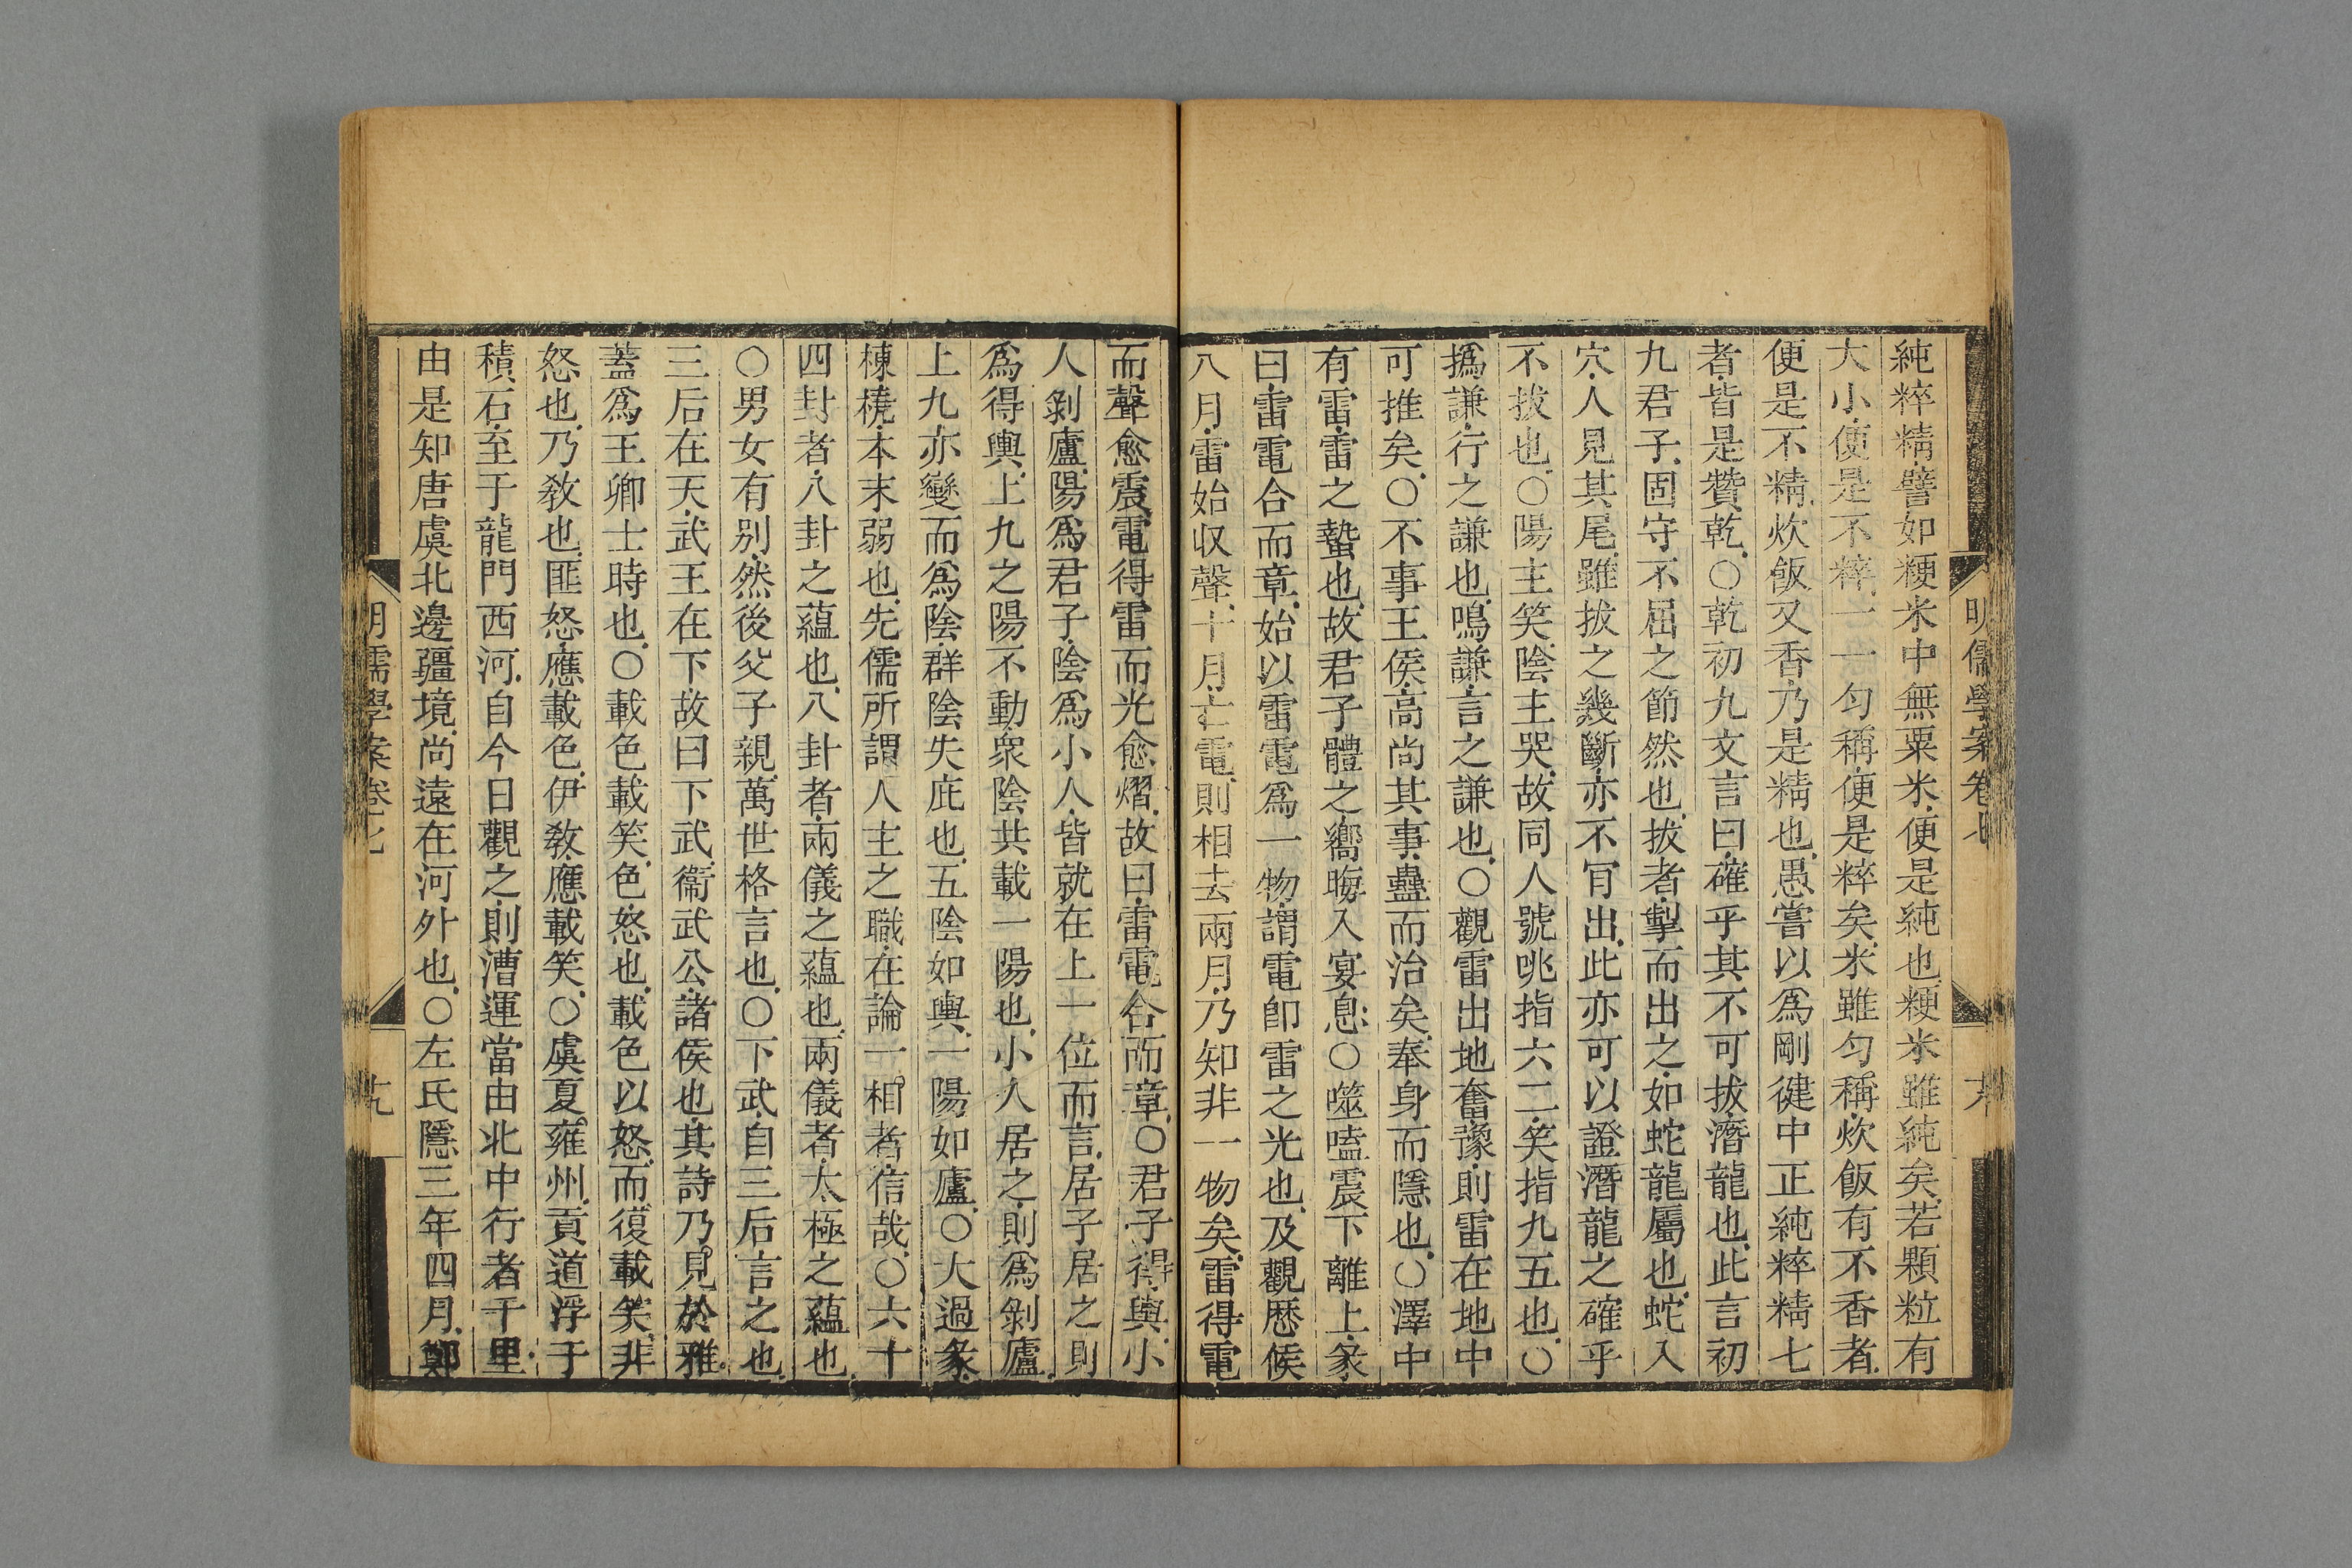 明儒學案卷七
純粹精譬如粳米中無粟米便是純也粳米雖純矣若顆粒有
大小便是不粹一一勻稱便是粹矣米雖勻稱炊飯有不香者
便是不精炊飯又香乃是精也愚嘗以爲剛健中正純粹精七
者皆是贊乾○乾初九文言曰確乎其不可拔潛龍也此言初
九君子固守不屈之節然也拔者掣而出之如蛇龍屬也蛇入
穴人見其尾雖拔之幾斷亦不肎出此亦可以證潛龍之確乎
不拔也○陽主笑陰主哭故同人號咷指六二笑指九五也○
撝謙行之謙也鳴謙言之謙也○觀雷出地奮豫則雷在地中
可推矣○不事王侯高尚其事蠱而治矣奉身而隱也○澤中
有雷雷之蟄也故君子體之嚮晦入宴息○噬嗑震下離上彖
曰雷電合而章始以雷電爲一物謂電卽雷之光也及觀歷候
八月雷始収聲十月亡電則相去兩月乃知非一物矣雷得電
而聲愈震電得雷而光愈熠故曰雷電合而章○君子得輿小
人剝廬陽爲君子陰爲小人皆就在上一位而言居子居之則
爲得輿上九之陽不動衆陰共載一陽也小人居之則爲剝廬
上九亦變而爲陰群陰失庇也五陰如輿一陽如廬○大過彖
棟橈本末弱也先儒所謂人主之職在論一相者信哉○六十
四封者八卦之蘊也八卦者兩儀之蘊也兩儀者太極之蘊也
○男女有別然後父子親萬世格言也○下武自三后言之也
三后在天武王在下故曰下武衞武公諸侯也其詩乃見於雅
蓋爲王卿士時也○載色載笑色怒也載色以怒而復載笑非
怒也乃敎也匪怒應載色伊敎應載笑○虞夏雍州貢道浮于
積石至于龍門西河自今日觀之則漕運當由北中行者千里
由是知唐虞北邊疆境尚遠在河外也○左氏隱三年四月鄭
明儒學案卷七